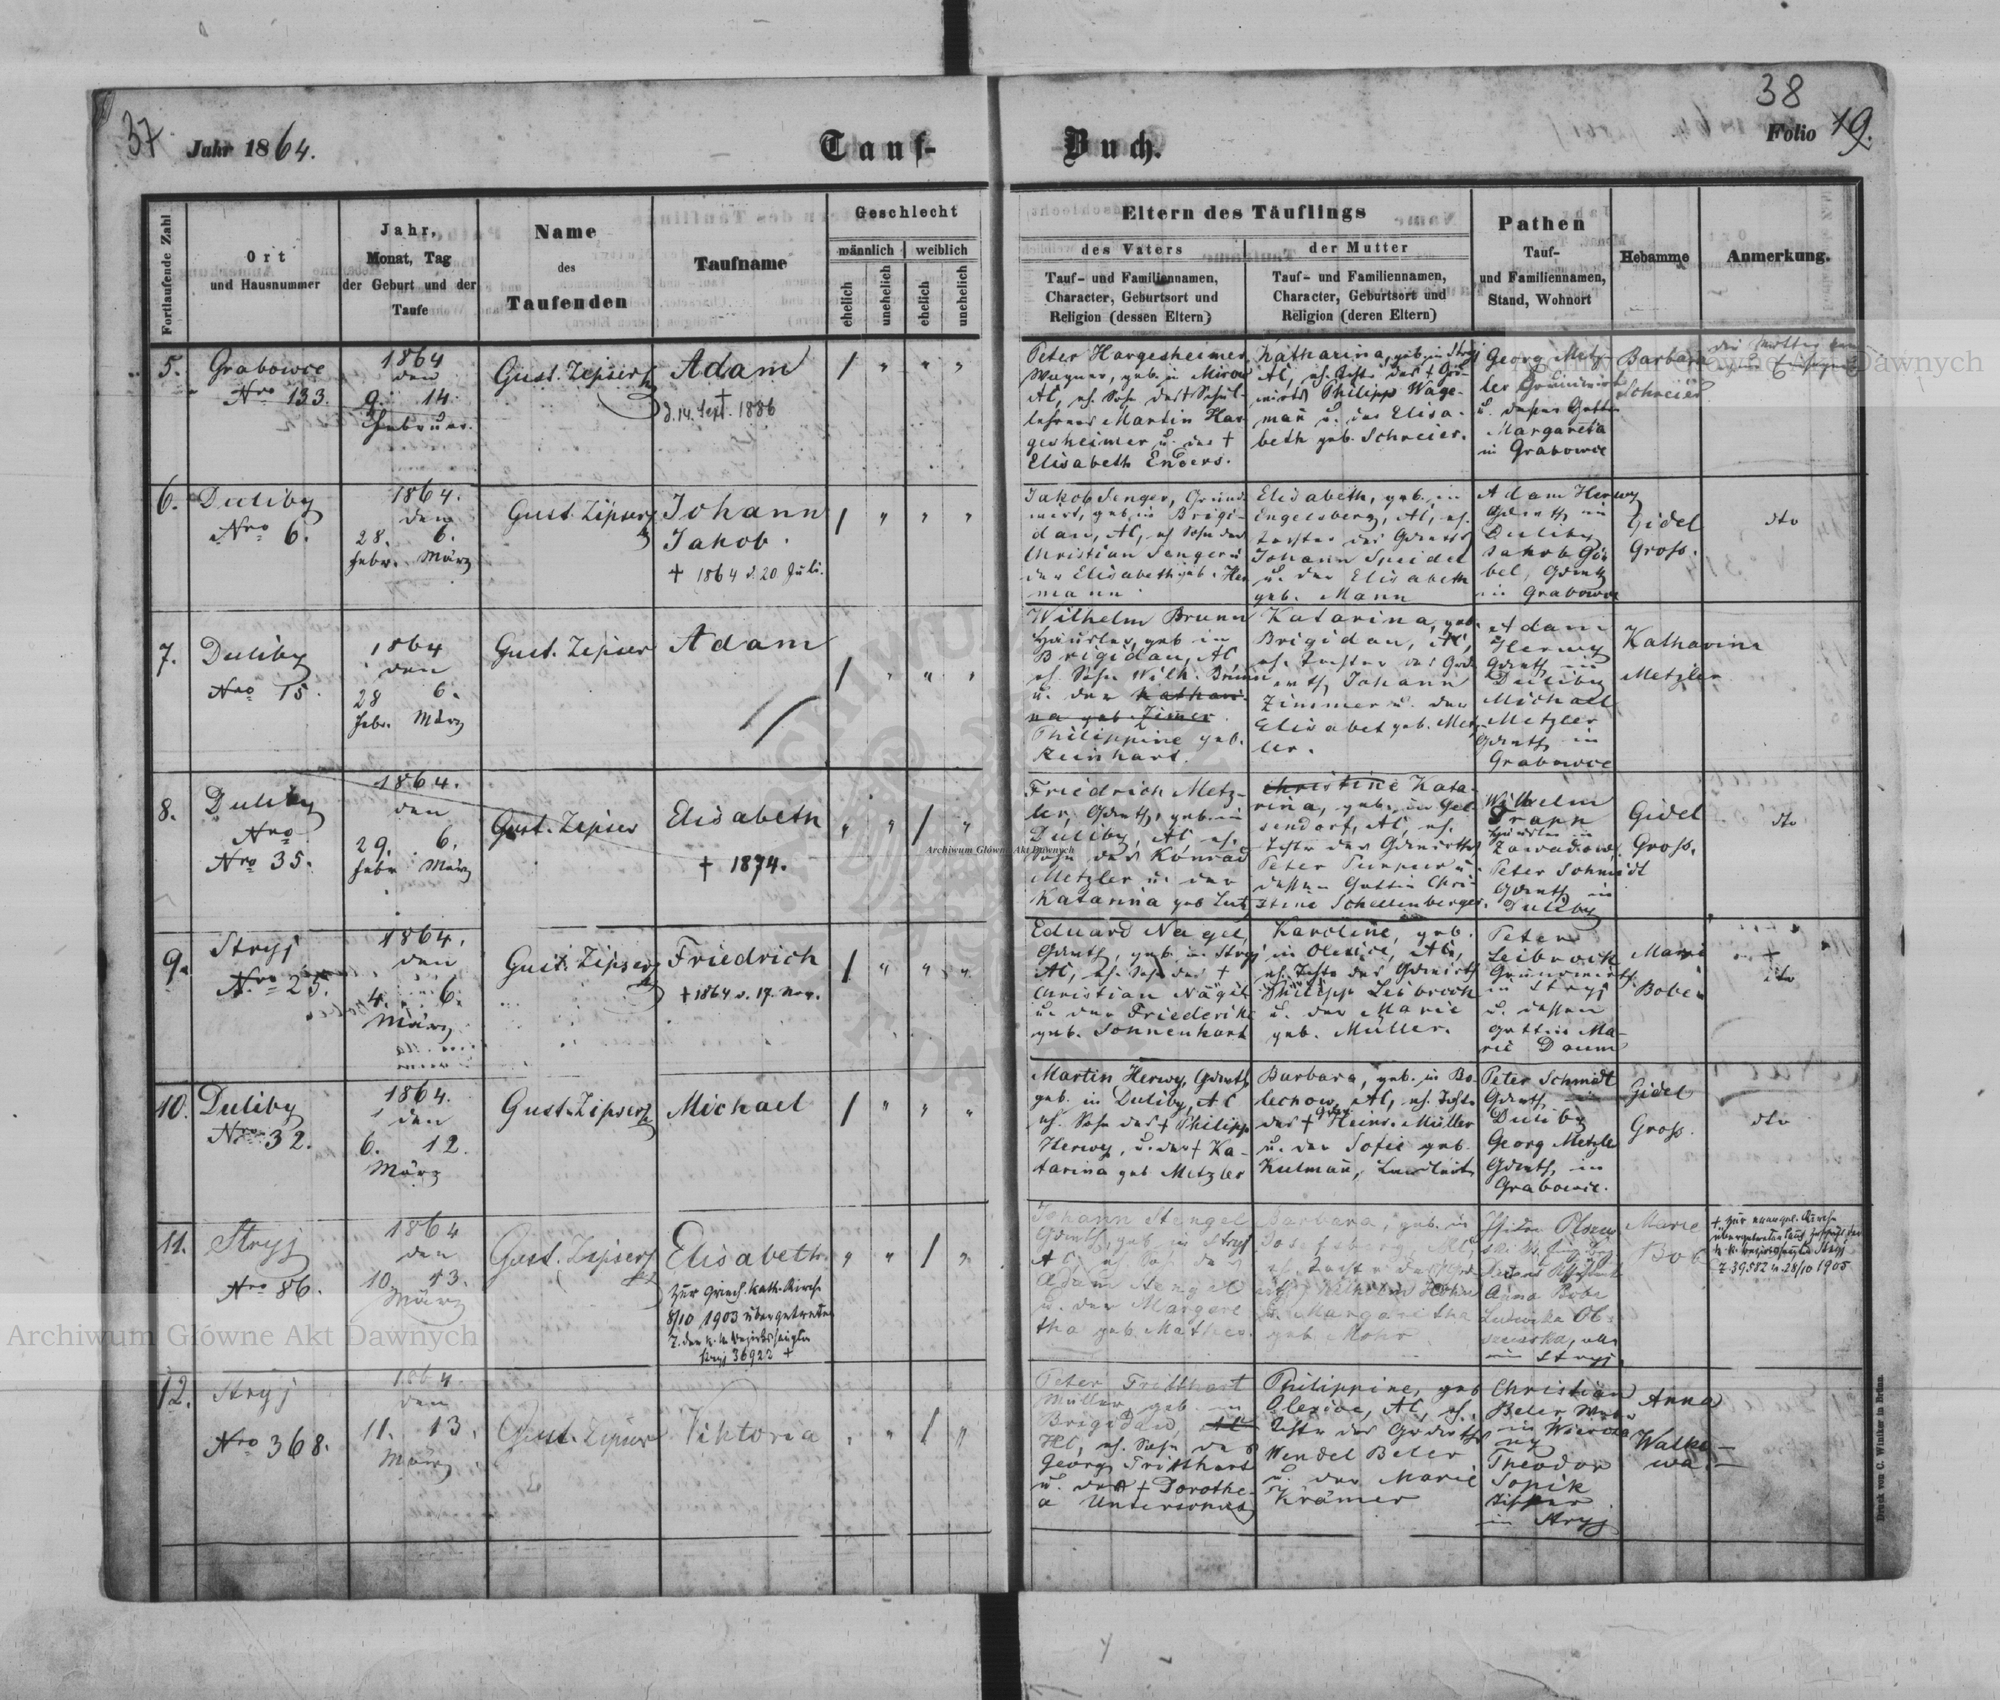 37
Jahr 1864.
Tauf-
Buch.
38
Folio 19.
Fortlaufende Zahl
Ort
und Hausnummer
Jahr,
Monat, Tag
der Geburt und der
Taufe
Name
des
Taufenden
Taufname
Geschlecht
männlich
weiblich
ehelich
unehelich
ehelich
unehelich
Eltern des Täuflings
des Vaters
Tauf- und Familiennamen,
Character, Geburtsort und
Religion (dessen Eltern)
der Mutter
Tauf- und Familiennamen,
Character, Geburtsort und
Religion (deren Eltern)
Pathen
Tauf-
und Familiennamen,
Stand, Wohnort
Hebamme
Anmerkung.
5.
Grabowce
Nro 133.
1864
den
9. 14.
Februar.
Gust. Zipser
Adam
†
d. 14. Sept. 1886
Peter Hargesheimer,
Wagner, geb. in
AC, eh. Sohn des † Schul-
lehrers Martin Har-
gesheimer u. der †
Elisabeth Enders.
Katharina, geb. in Stryj
AC, eh. Tocht. des † Gd-
wirts Philipp Wage-
mañ u. der Elisa-
beth geb. Schreier.
Georg Metz-
ler Grundwirt
u. dessen Gattin
Margareta
in Grabowce
Barbara
Schreier
6.
Duliby
Nro 6.
1864.
den
28. 6.
Febr. März
Gust. Zipser
Johann
Jakob.
† 1864 d. 20 Juli.
Jakob Senger, Grund-
wirt, geb. in Brigi-
dau, AC, eh Sohn des
Christian Senger u
der Elisabeth geb. Her
mann
Elisabeth, geb. in
Engelsberg, AC, eh.
Tochter des Gdwirts
Johann Speidel
u. der Elisabeth
geb. Mann
Adam Herwy
Gdwth in
Duliby
Jakob Gö-
bel, Gdwth
in Grabowce
Gidel
Gross.
dto
7.
Duliby
Nro 15.
1864
den
28 6.
Febr. März
Gust. Zipser
Adam
Wilhelm Brunn
Häusler, geb in
Brigidau, AC,
eh. Sohn Wilh. Brunn
u. der Kathari-
na geb. Zimmer
Philippine geb.
Reinhart.
Katarina, geb.
Brigidau, AC,
eh. Tochter des Gd-
wth Johann
Zimmer u. der
Elisabet geb. Metz-
ler.
Adam
Herwy
Gdwth in
Duliby
Michael
Metzler
Gdwth in
Grabowce
Katharina
Metzler
8.
Duliby
Nro
Nro 35.
1864.
den
29. 6.
Febr März
Gust. Zipser
Elisabeth
† 1874.
Friedrich Metz-
ler, Gdwth, geb. in
Duliby, AC, eh.
Sohn des Konrad
Metzler u. der
Katarina geb Lutz
Christine Kata-
rina, geb. in Gel-
sendorf, AC, eh.
Tochter des Gdwirths
Peter u.
dessen Gattin Chri-
stine Schellenberger.
Wilhelm
Häusler in
Zawadow
Peter Schmidt
Gdwth in
Duliby
Gidel
Gross.
dto
9.
Stryj
Nro 25.
1864.
den
4. 6.
März
Gust. Zipser
Friedrich
† 1864 d. 17. Nov.
Eduard Nagel,
Gdwth, geb. in Stryj
AC, eh. Sohn des †
Christian Nagel
u. der Friederike
geb. Sonnenhart
Karoline, geb.
in Olexice, AC,
eh. Tocht. des Gdwirth
Philipp Leibrock
u. der Marie
geb. Müller.
Peter
Leibrock
Grundwirth
in Stryj
u. dessen
Gattin Ma-
rie Daum
Marie
Bober
dto
10.
Duliby
Nro 32.
1864.
den
6. 12.
März
Gust. Zipser
Michael
Martin Herwy, Gdwth
geb. in Duliby, AC
eh. Sohn des † Philipp
Herwy, u. der † Ka-
tarina geb Metzler
Barbara, geb. in Bo-
lechow, AC, eh. Tocht
des † Heinr. Müller
u. der Sofie geb.
Kulmañ,
Peter Schmidt
Gdwth in
Duliby
Georg Metzler
Gdwth, in
Grabowce.
Gidel
Gross.
dto
11.
Stryj
Nro 86.
1864
den
10. 13.
März
Gust. Zipser
Elisabeth
zur Griech. kath. Kirche
8/10 1903 übergetreten
Z. der k. k. Bezirkshptm
Stryj 36922 †
Johann Stengel
Gdwth, geb. in Stryj
AC, eh Sohn des
Adam Stengel
u. der Margare
tha geb. Mathes.
Barbara, geb. in
Josefsberg, AC,
Margaretha
geb. Mohr
Anna Bobe
in Stryj.
Marie
Bob
† zur evangel. Kirche
übergetreten laut
k. k. Bezirkshptm Stryj
Z. 39582 v. 28/10 1905
12.
Stryj
Nro 368.
1864.
den
11. 13.
März
Gust. Zipser
Viktoria
Peter Tritthart
Müller, geb. in
Brigidau, AC
HC, eh. Sohn des
Georg Tritthart
u. der † Dorothe-
a
Philippine, geb
Olexice, AC, eh.
Tochter des Gdwirths
Wendel Beler
u. der Marie
Krämer
Christian
Beler,
Theodor
Sopik
in Stryj
Anna
Walko-
wa.
Druck von C. Winiker in Brünn.
Archiwum Główne Akt Dawnych
Archiwum Główne Akt Dawnych
Archiwum Główne Akt Dawnych